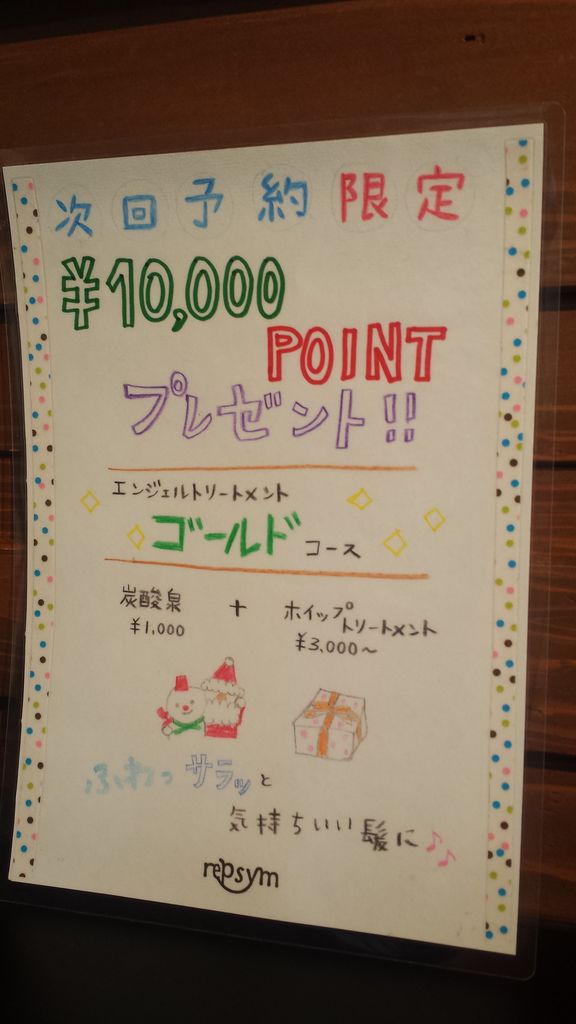 次回予約限定
¥10,000
POINT
プレゼント!!
エンジェルトリートメント
ゴールドコース
炭酸泉 + ホイップ
トリートメント
¥1,000 ¥3,000〜
ふわっ サラッと
気持ちいい髪に♪♪
repsym